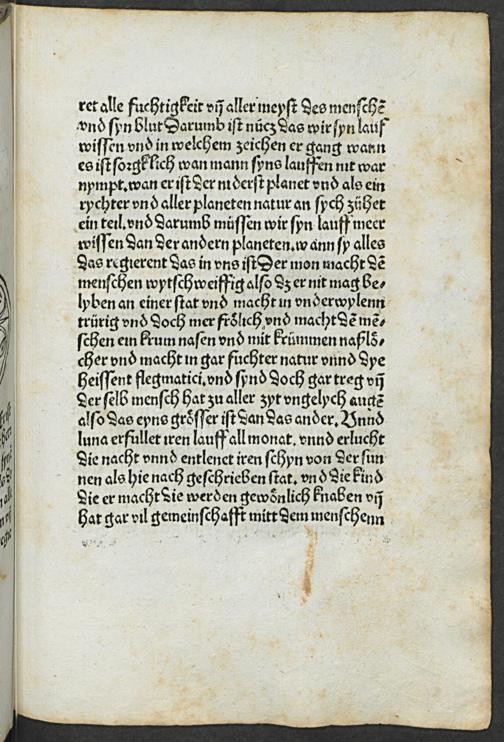 ret alle fuchtigkeit vñ aller meyst des menschẽ
vnd syn blut Darumb ist nücz das wir syn lauf
wissen vnd in welchem zeichen er gang wann
es ist sorgklich wan mann syns lauffen nit war
nympt, wan er ist der niderst planet vnd als ein
rychter vnd aller planeten natur an sych zühet
ein teil. vnd darumb müssen wir syn lauff meer
wissen dan der andern planeten. wann sy alles
das regierent das in vns ist Der mon macht dẽ
menschen wytschweiffig also dz er nit mag be⸗
lyben an einer stat vnd macht in vnderwylenn
trürig vnd doch mer frölich vnd macht dẽ mẽ⸗
schen ein krum nasen vnd mit krümmen naßlö⸗
cher vnd macht in gar fuchter natur vnnd dye
heissent flegmatici. vnd synd doch gar treg vñ
der selb mensch hat zu aller zyt vngelych augẽ
also das eyns grösser ist dan das ander. Vnnd
luna erfullet iren lauff all monat. vnnd erlucht
die nacht vnnd entlenet iren schyn von der sun
nen als hie nach geschrieben stat. vnd die kind
die er macht die werden gewönlich knaben vñ
hat gar vil gemeinschafft mitt dem menschenn